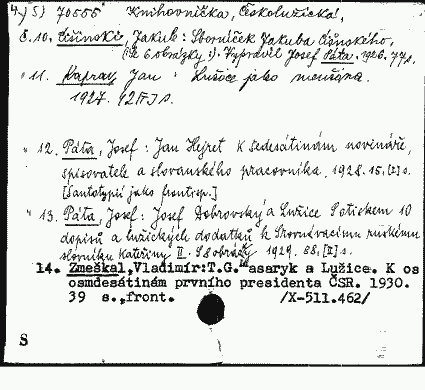 4.) S) 70555 Knihovnička, Českolužická,
č. 10. Čišinski, Jakub: Sborníček Jakuba Čišinského,
(: Se 6 obrázky :). Vypravil Josef Páta. 1926. 77 s.
" 11. Kapras Jan: Lužice jako menšina.
1927. 12 s.
" 12. Páta, Josef: Jan Hejret K šedesátinám novináře,
spisovatele a slovanského pracovníka. 1928. 15, [2] s.
[S autotypií jako frontisp.]
" 13. Páta, Josef: Josef Dobrovský a Lužice S otiskem 10
dopisů a lužických dodatků k Srovnávacímu ruskému
slovníku Kateřiny II. S 8 obrázky 1929. 88, [II] s.
14. Zmeškal, Vladimír: T.G. Masaryk a Lužice. K os
osmdesátinám prvního presidenta ČSR. 1930.
39 s., front. /X-511.462/
S